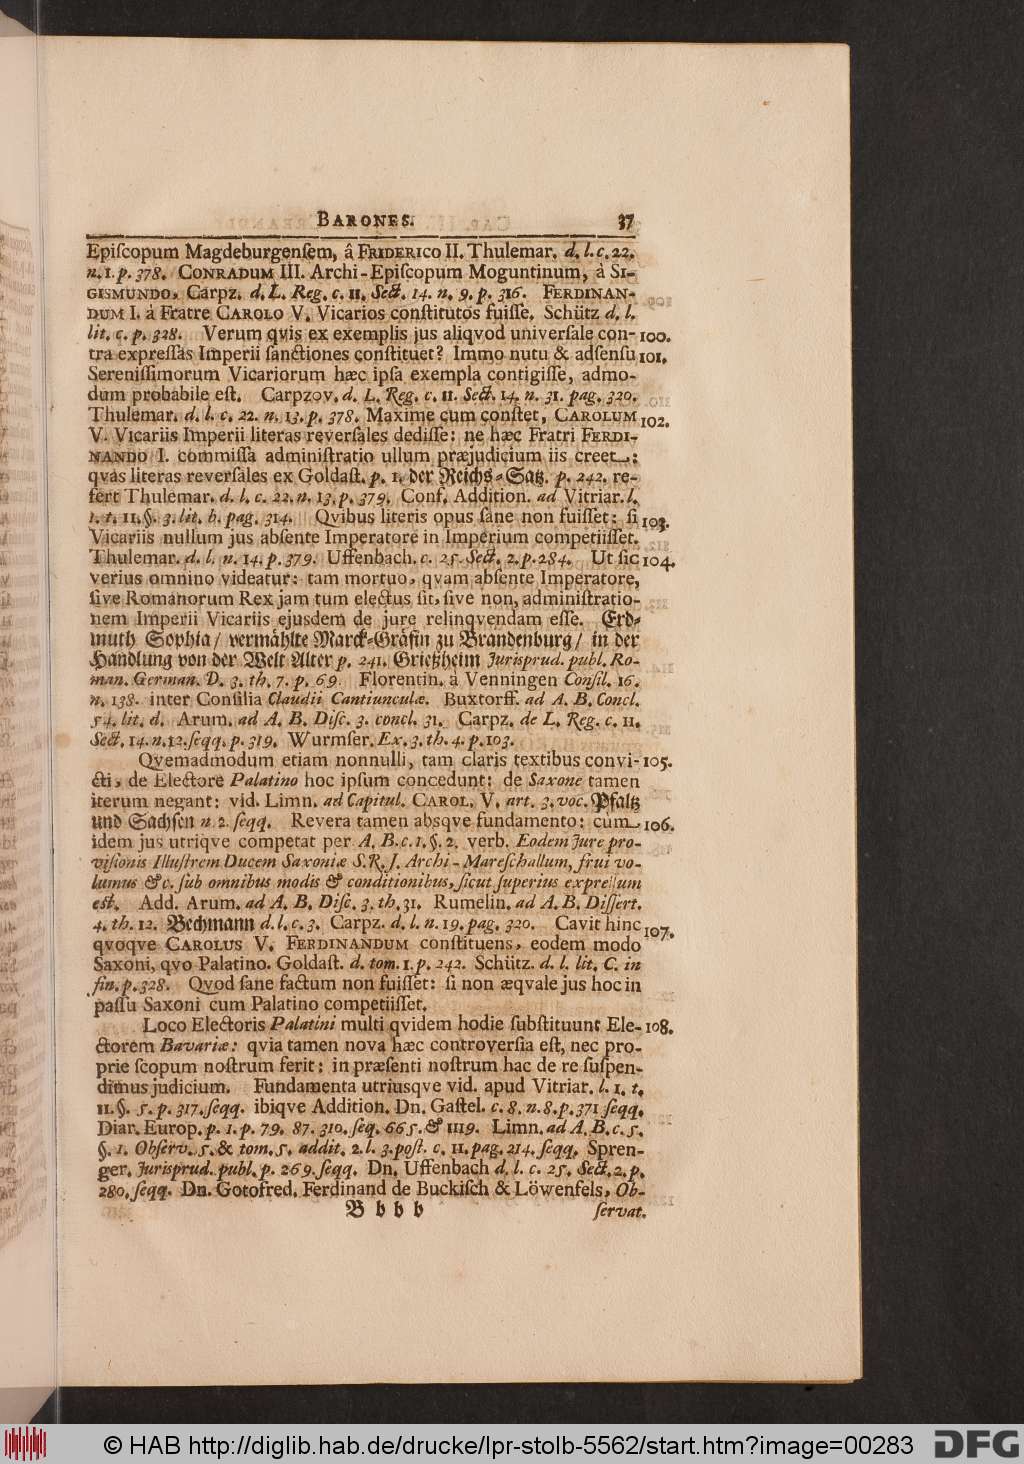 BARONES. 37
Epiſcopum Magdeburgenſem, â FRIDERICO II. Thulemar. d. l. c. 22.
n. 1. p. 378. CONRADUM III. Archi-Epiſcopum Moguntinum, à SI-
GISMUNDO, Carpz. d. L. Reg. c. 11. Sect. 14. n. 9. p. 316. FERDINAN-
DUM I. à Fratre CAROLO V. Vicarios conſtitutos fuiſſe. Schütz d. l.
lit. c. p. 328. Verum qvis ex exemplis jus aliqvod univerſale con- 100.
tra expreſſas Imperii ſanctiones conſtituet? Immo nutu & adſenſu 101.
Sereniſſimorum Vicariorum hæc ipſa exempla contigiſſe, admo-
dum probabile eſt. Carpzov. d. L. Reg. c. 11. Sect. 14. n. 31. pag. 320.
Thulemar. d. l. c. 22. n. 13. p. 378. Maxime cum conſtet, CAROLUM 102.
V. Vicariis Imperii literas reverſales dediſſe: ne hæc Fratri FERDI-
NANDO I. commiſſa adminiſtratio ullum præjudicium iis creet:
qvas literas reverſales ex Goldaſt. p. 1. der Reichs-Satz. p. 242. re-
fert Thulemar. d. l. c. 22. n. 13. p. 379. Conf. Addition. ad Vitriar. l.
1. t. 11. §. 3. lit. b. pag. 314. Qvibus literis opus ſane non fuiſſet: ſi 103.
Vicariis nullum jus abſente Imperatore in Imperium competiiſſet.
Thulemar. d. l. n. 14. p. 379. Uffenbach. c. 25. Sect. 2. p. 284. Ut ſic 104.
verius omnino videatur: tam mortuo, qvam abſente Imperatore,
ſive Romanorum Rex jam tum electus ſit, ſive non, adminiſtratio-
nem Imperii Vicariis ejusdem de jure relinqvendam eſſe. Erd-
muth Sophia/ vermählte Marck-Gräfin zu Brandenburg/ in der
Handlung von der Welt Alter p. 241. Grietzheim Jurisprud. publ. Ro-
man. German. D. 3. th. 7. p. 69. Florentin. à Venningen Conſil. 16.
n. 138. inter Conſilia Claudii Cantiunculæ. Buxtorff. ad A. B. Concl.
54. lit. d. Arum. ad A. B. Diſc. 3. concl. 31. Carpz. de L. Reg. c. 11.
Sect. 14. n. 12. ſeqq. p. 319. Wurmſer. Ex. 3. th. 4. p. 103.
Qvemadmodum etiam nonnulli, tam claris textibus convi- 105.
cti, de Electore Palatino hoc ipſum concedunt: de Saxone tamen
iterum negant: vid. Limn. ad Capitul. CAROL. V. art. 3. voc. Pfaltz
und Sachſen n. 2. ſeqq. Revera tamen absqve fundamento: cum 106.
idem jus utriqve competat per A. B. c. 1. §. 2. verb. Eodem Jure pro-
viſionis Illuſtrem Ducem Saxoniæ S. R. J. Archi-Mareſchallum, frui vo-
lumus &c. ſub omnibus modis & conditionibus, ſicut ſuperius expreſſum
eſt. Add. Arum. ad A. B. Diſc. 3. th. 31. Rumelin. ad A. B. Diſſert.
4. th. 12. Bechmann d. l. c. 3. Carpz. d. l. n. 19. pag. 320. Cavit hinc 107.
qvoqve CAROLUS V. FERDINANDUM conſtituens, eodem modo
Saxoni, qvo Palatino. Goldaſt. d. tom. 1. p. 242. Schütz. d. l. lit. C. in
fin. p. 328. Qvod ſane factum non fuiſſet: ſi non æqvale jus hoc in
paſſu Saxoni cum Palatino competiiſſet.
Loco Electoris Palatini multi qvidem hodie ſubſtituunt Ele- 108.
ctorem Bavariæ: qvia tamen nova hæc controverſia eſt, nec pro-
prie ſcopum noſtrum ferit: in præſenti noſtrum hac de re ſuſpen-
dimus judicium. Fundamenta utriusqve vid. apud Vitriar. l. 1. t.
11. §. 5. p. 317. ſeqq. ibiqve Addition. Dn. Gaſtel. c. 8. n. 8. p. 371 ſeqq.
Diar. Europ. p. 1. p. 79. 87. 310. ſeq. 665. & 1119. Limn. ad A. B. c. 5.
§. 1. Obſerv. 5. & tom. 5. addit. 2. l. 3. poſt. c. 11. pag. 214. ſeqq. Spren-
ger. Jurisprud. publ. p. 269. ſeqq. Dn. Uffenbach d. l. c. 25. Sect. 2. p.
280. ſeqq. Dn. Gotofred. Ferdinand de Buckiſch & Löwenfels, Ob-
B b b b ſervat.
© HAB http://diglib.hab.de/drucke/lpr-stolb-5562/start.htm?image=00283 DFG